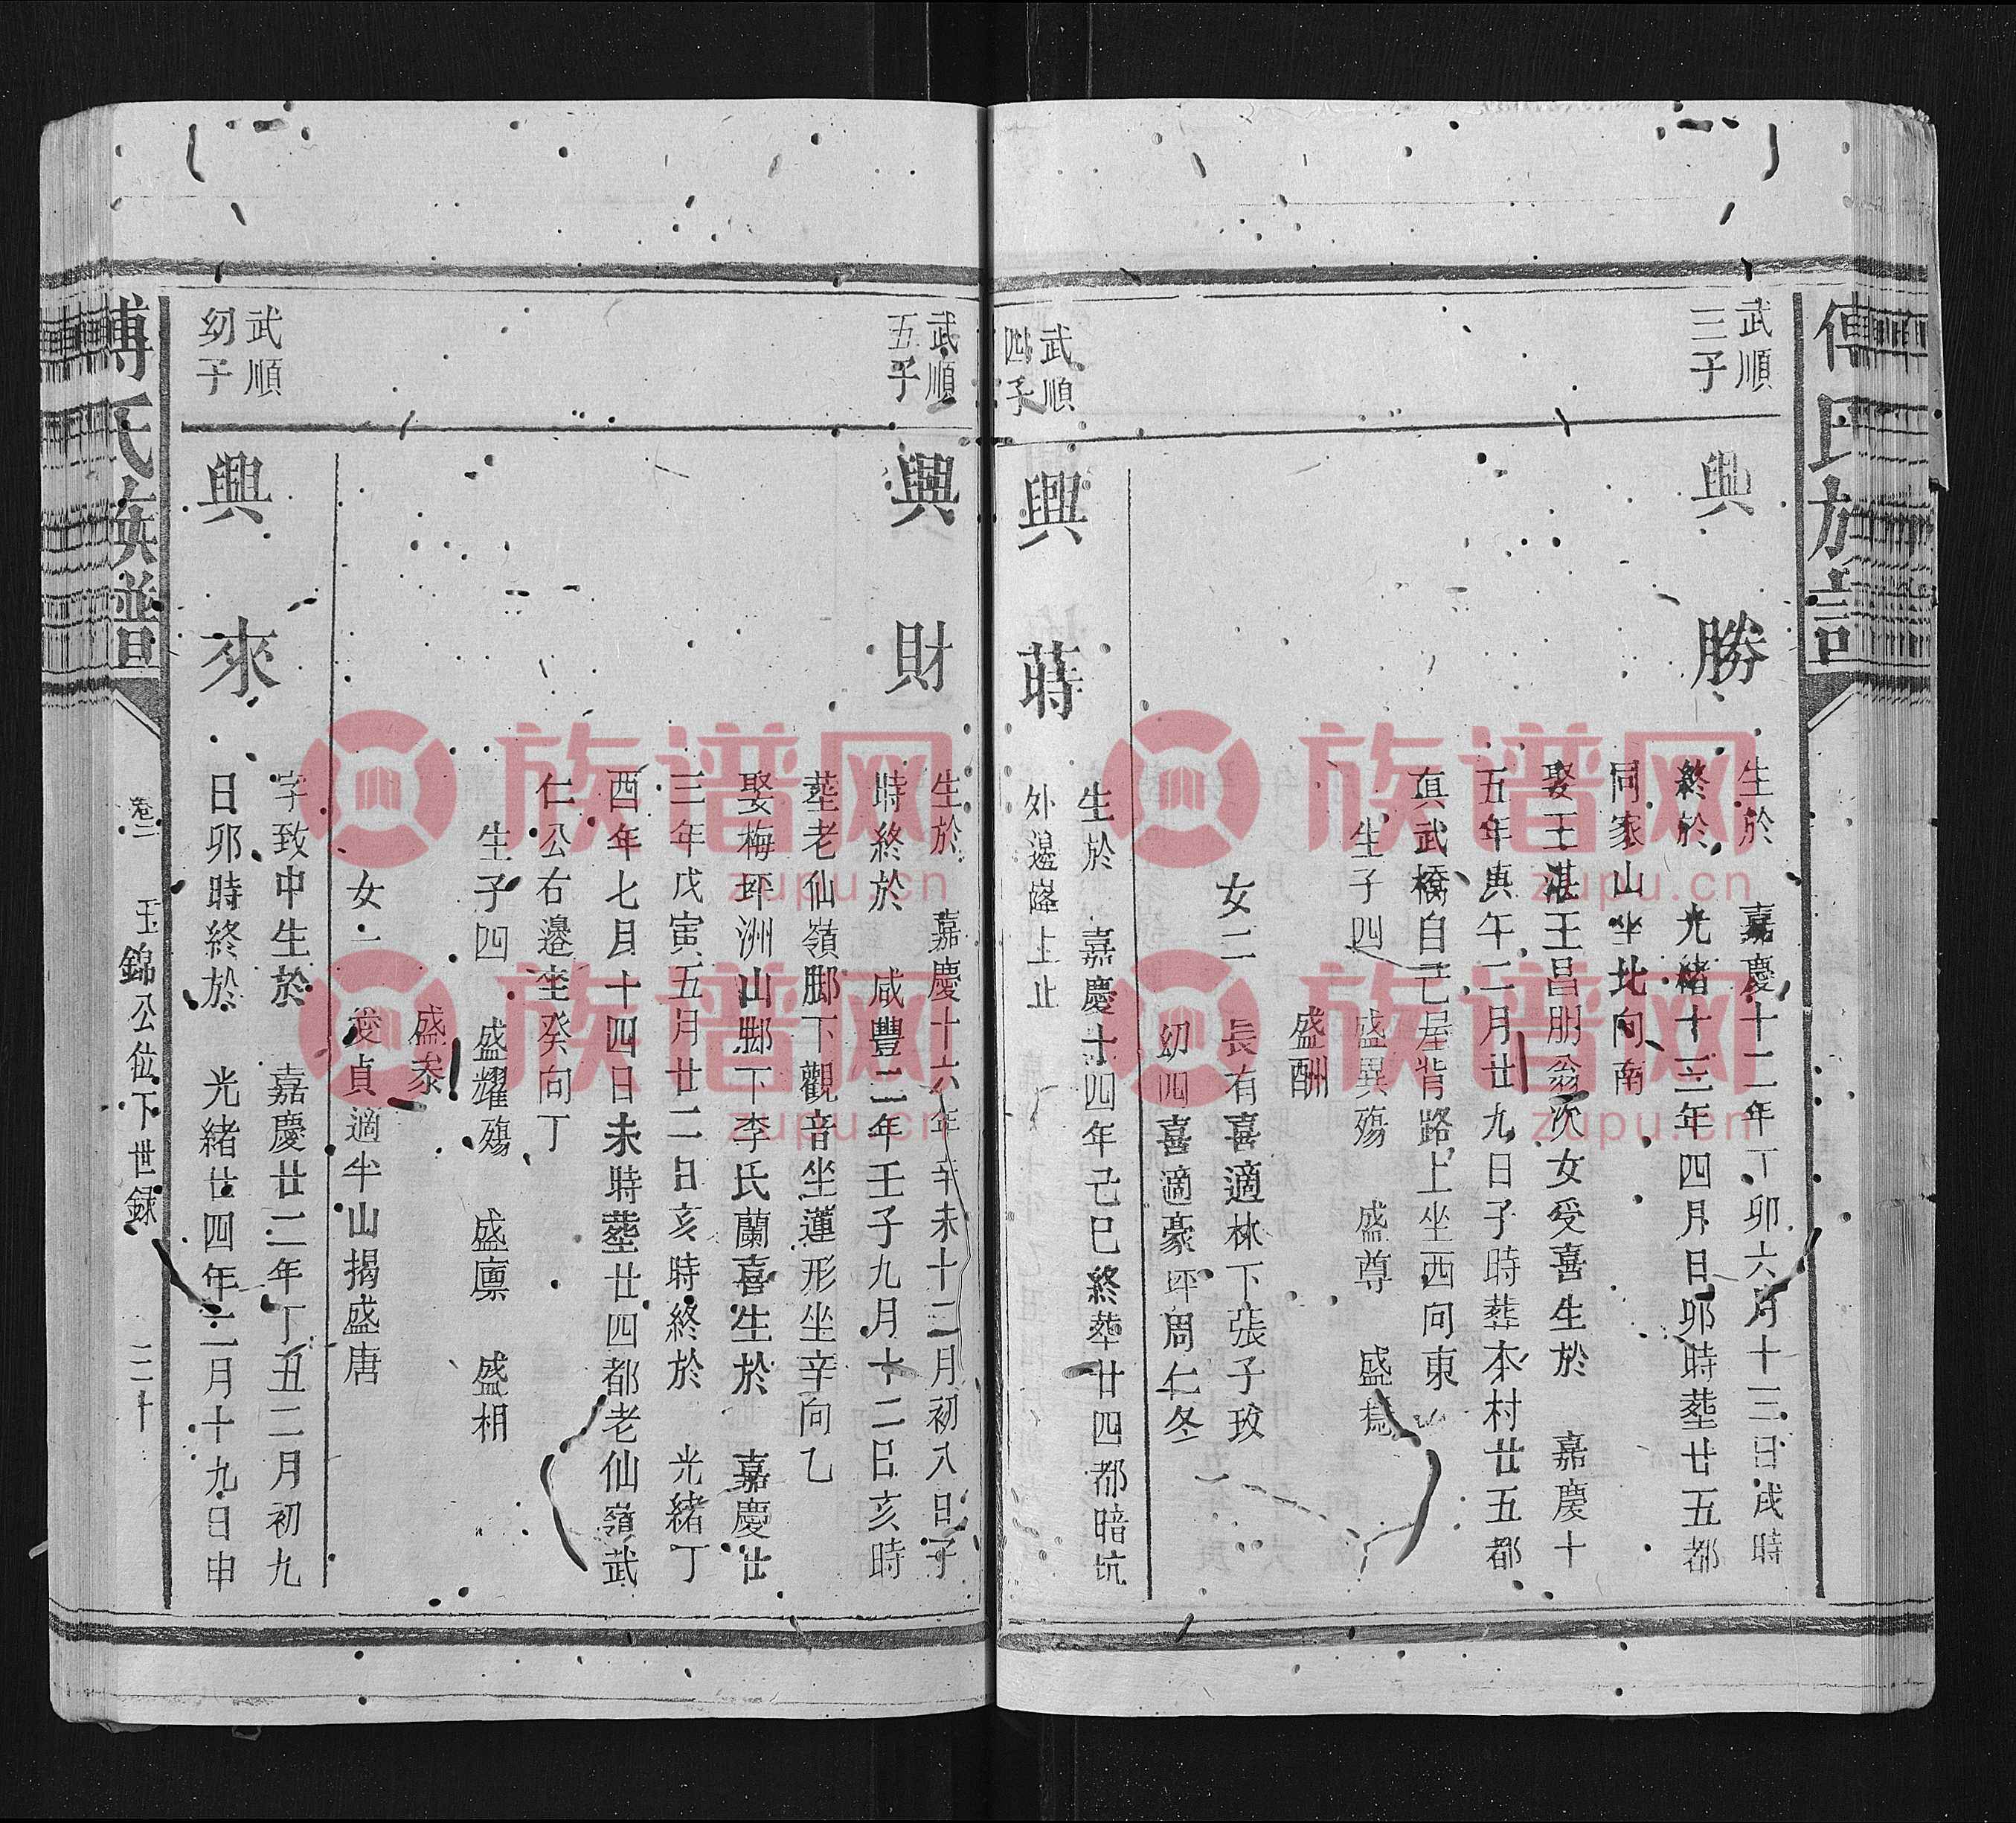 傅氏族譜
武順
三子
興勝
生於 嘉慶十二年丁卯六月十三日戌時
終於 光緒十三年四月日卯時塟廿五都
同家山坐北向南
娶王湛王昌朋翁次女受喜生於 嘉慶十
五年庚午二月廿九日子時塟本村廿五都
真武橋自己屋背路上坐西向東
生子四 盛異殤 盛尊 盛
盛酬
女二 長有喜適林下張子玫
幼四喜適豪坪周仁冬
武順
四子
興蒔
生於 嘉慶十四年己巳終塟廿四都暗坑
外邊窿上止
武順
五子
興財
生於 嘉慶十六年辛未十二月初八日子
時終於 咸豐二年壬子九月十二日亥時
塟老仙嶺腳下觀音坐蓮形坐辛向乙
娶梅坪洲山腳下李氏蘭喜生於 嘉慶廿
三年戊寅五月廿二日亥時終於 光緒丁
酉年七月十四日未時塟廿四都老仙嶺武
仁公右邊坐癸向丁
生子四 盛耀殤 盛廩 盛相
盛泰
女一 愛貞適半山揭盛唐
武順
幼子
興來
字致中生於 嘉慶廿二年丁丑二月初九
日卯時終於 光緒廿四年二月十九日申
傅氏族譜
卷二 玉錦公位下世録 二十
族谱网
zupu.cn
族谱网
zupu.cn
族谱网
zupu.cn
族谱网
zupu.cn